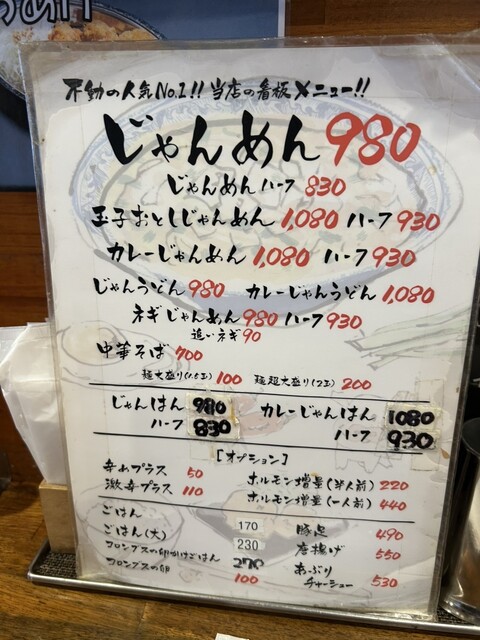 不動の人気No.1!! 当店の看板メニュー!!
じゃんめん 980
じゃんめんハーフ 830
玉子おとしじゃんめん 1,080 ハーフ 930
カレーじゃんめん 1,080 ハーフ 930
じゃんうどん 980 カレーじゃんうどん 1,080
ネギじゃんめん 980 ハーフ 930
追いネギ 90
中華そば 700
麺大盛り(1.5玉) 100 麺超大盛り(2玉) 200
じゃんはん 980 カレーじゃんはん 1080
ハーフ 830 ハーフ 930
[オプション]
辛みプラス 50 ホルモン増量(半人前) 220
激辛プラス 110 ホルモン増量(一人前) 440
ごはん 170 豚足 490
ごはん(大) 230 唐揚げ 550
コロンブスの卵かけごはん 270 あぶりチャーシュー 530
コロンブスの卵 100